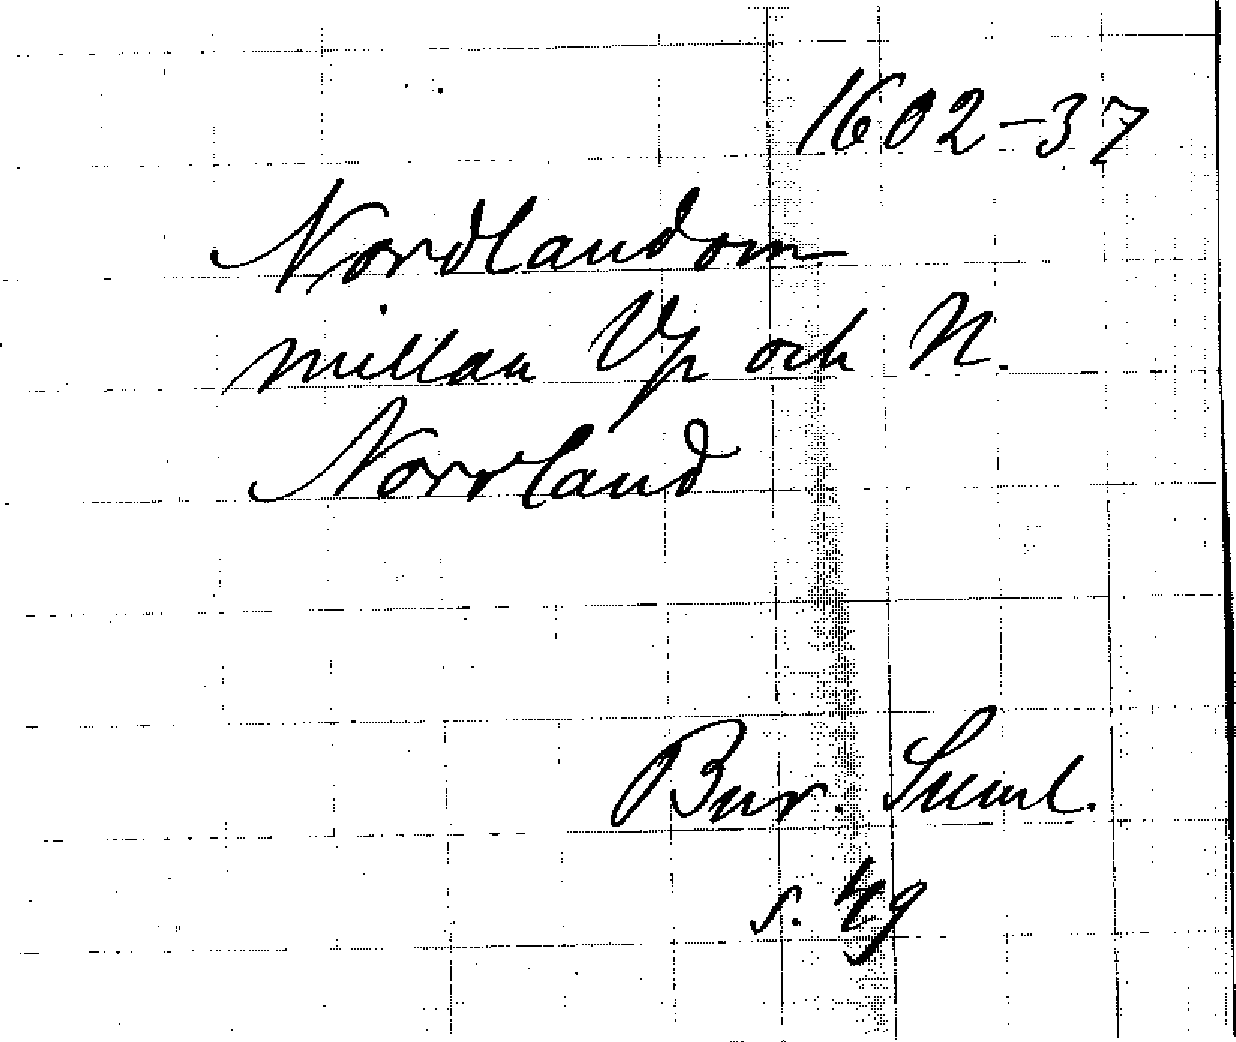 1602-37
Nordlandom
millan Vp och N.
Norrland
Bur. Suml.
s. 49